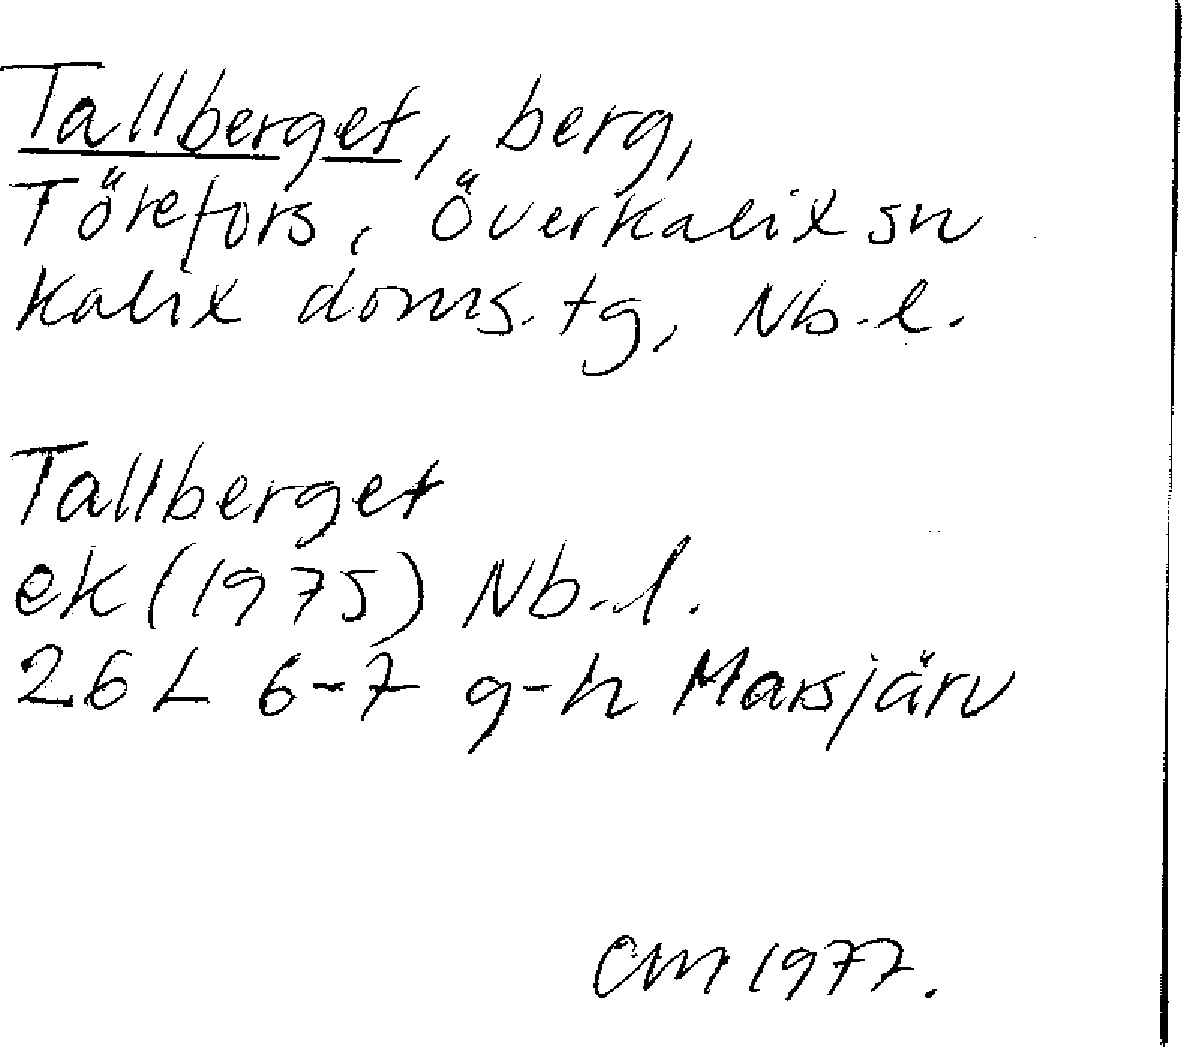 Tallberget, berg,
Törefors, Överkalix sn
Kalix doms. tg, Nb. l.
Tallberget
ek (1975) Nb. l.
26 L 6-7 g-h Marsjärv
CM 1977.